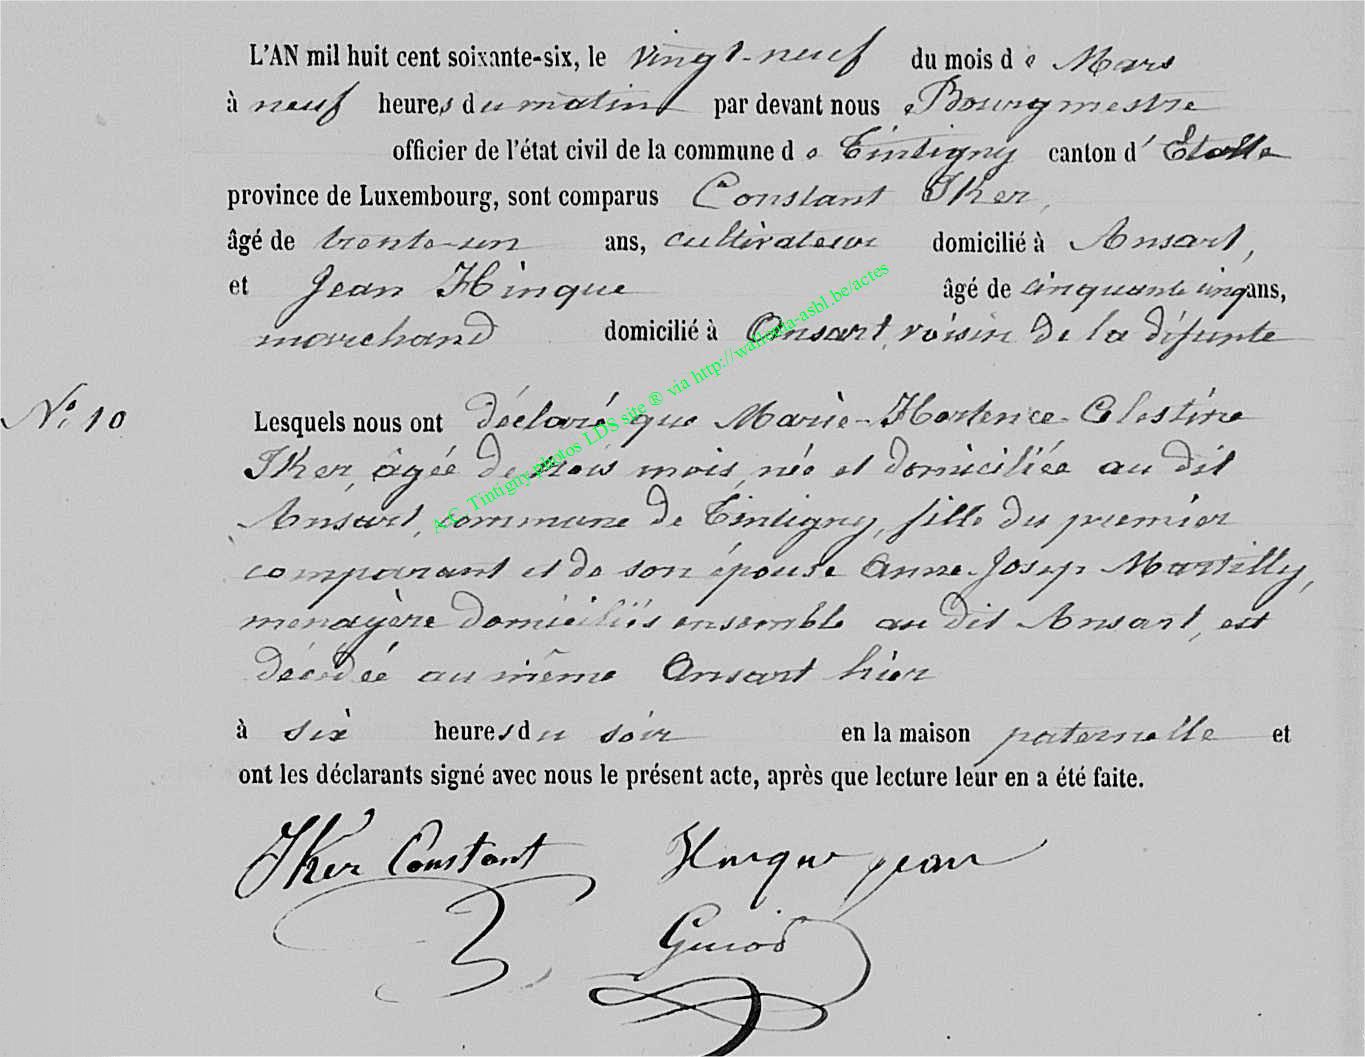 L'AN mil huit cent soixante-six, le vingt-neuf du mois de Mars
à neuf heures du matin par devant nous Bourgmestre
officier de l'état civil de la commune de Tintigny canton d'Etalle
province de Luxembourg, sont comparus Constant Iker,
âgé de trente-un ans, cultivateur domicilié à Ansart,
et Jean Hinque âgé de cinquante cinq ans,
marchand domicilié à Ansart, voisin de la défunte
N° 10 Lesquels nous ont déclaré que Marie-Hortence-Celestine
Iker, âgée de trois mois, née et domiciliée au dit
Ansart, commune de Tintigny, fille du premier
comparant et de son épouse Anne-Josep Martilly,
menagère domiciliés ensemble au dit Ansart, est
décédée au même Ansart hier
à six heures du soir en la maison paternelle et
ont les déclarants signé avec nous le présent acte, après que lecture leur en a été faite.
Iker Constant Hinque jean
A.C. Tintigny photos LDS site ® via http://wallonia-asbl.be/actes